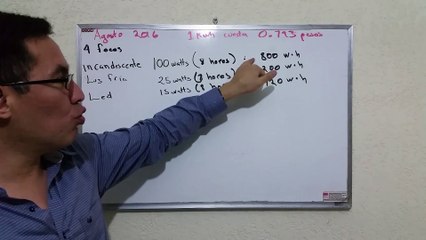 Agosto 2016 1 Kwh cuesta 0.793 pesos
4 focos
Incandescente 100 watts (8 horas) 800 w·h
Lus fria 25 watts (8 horas) 200 w·h
Led 15 watts (8 120 w·h